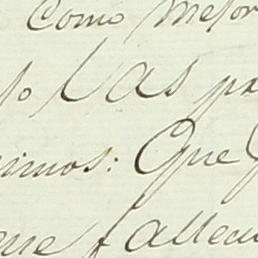 Como Mejor
lo Las pa
imos: Que
que fallecu